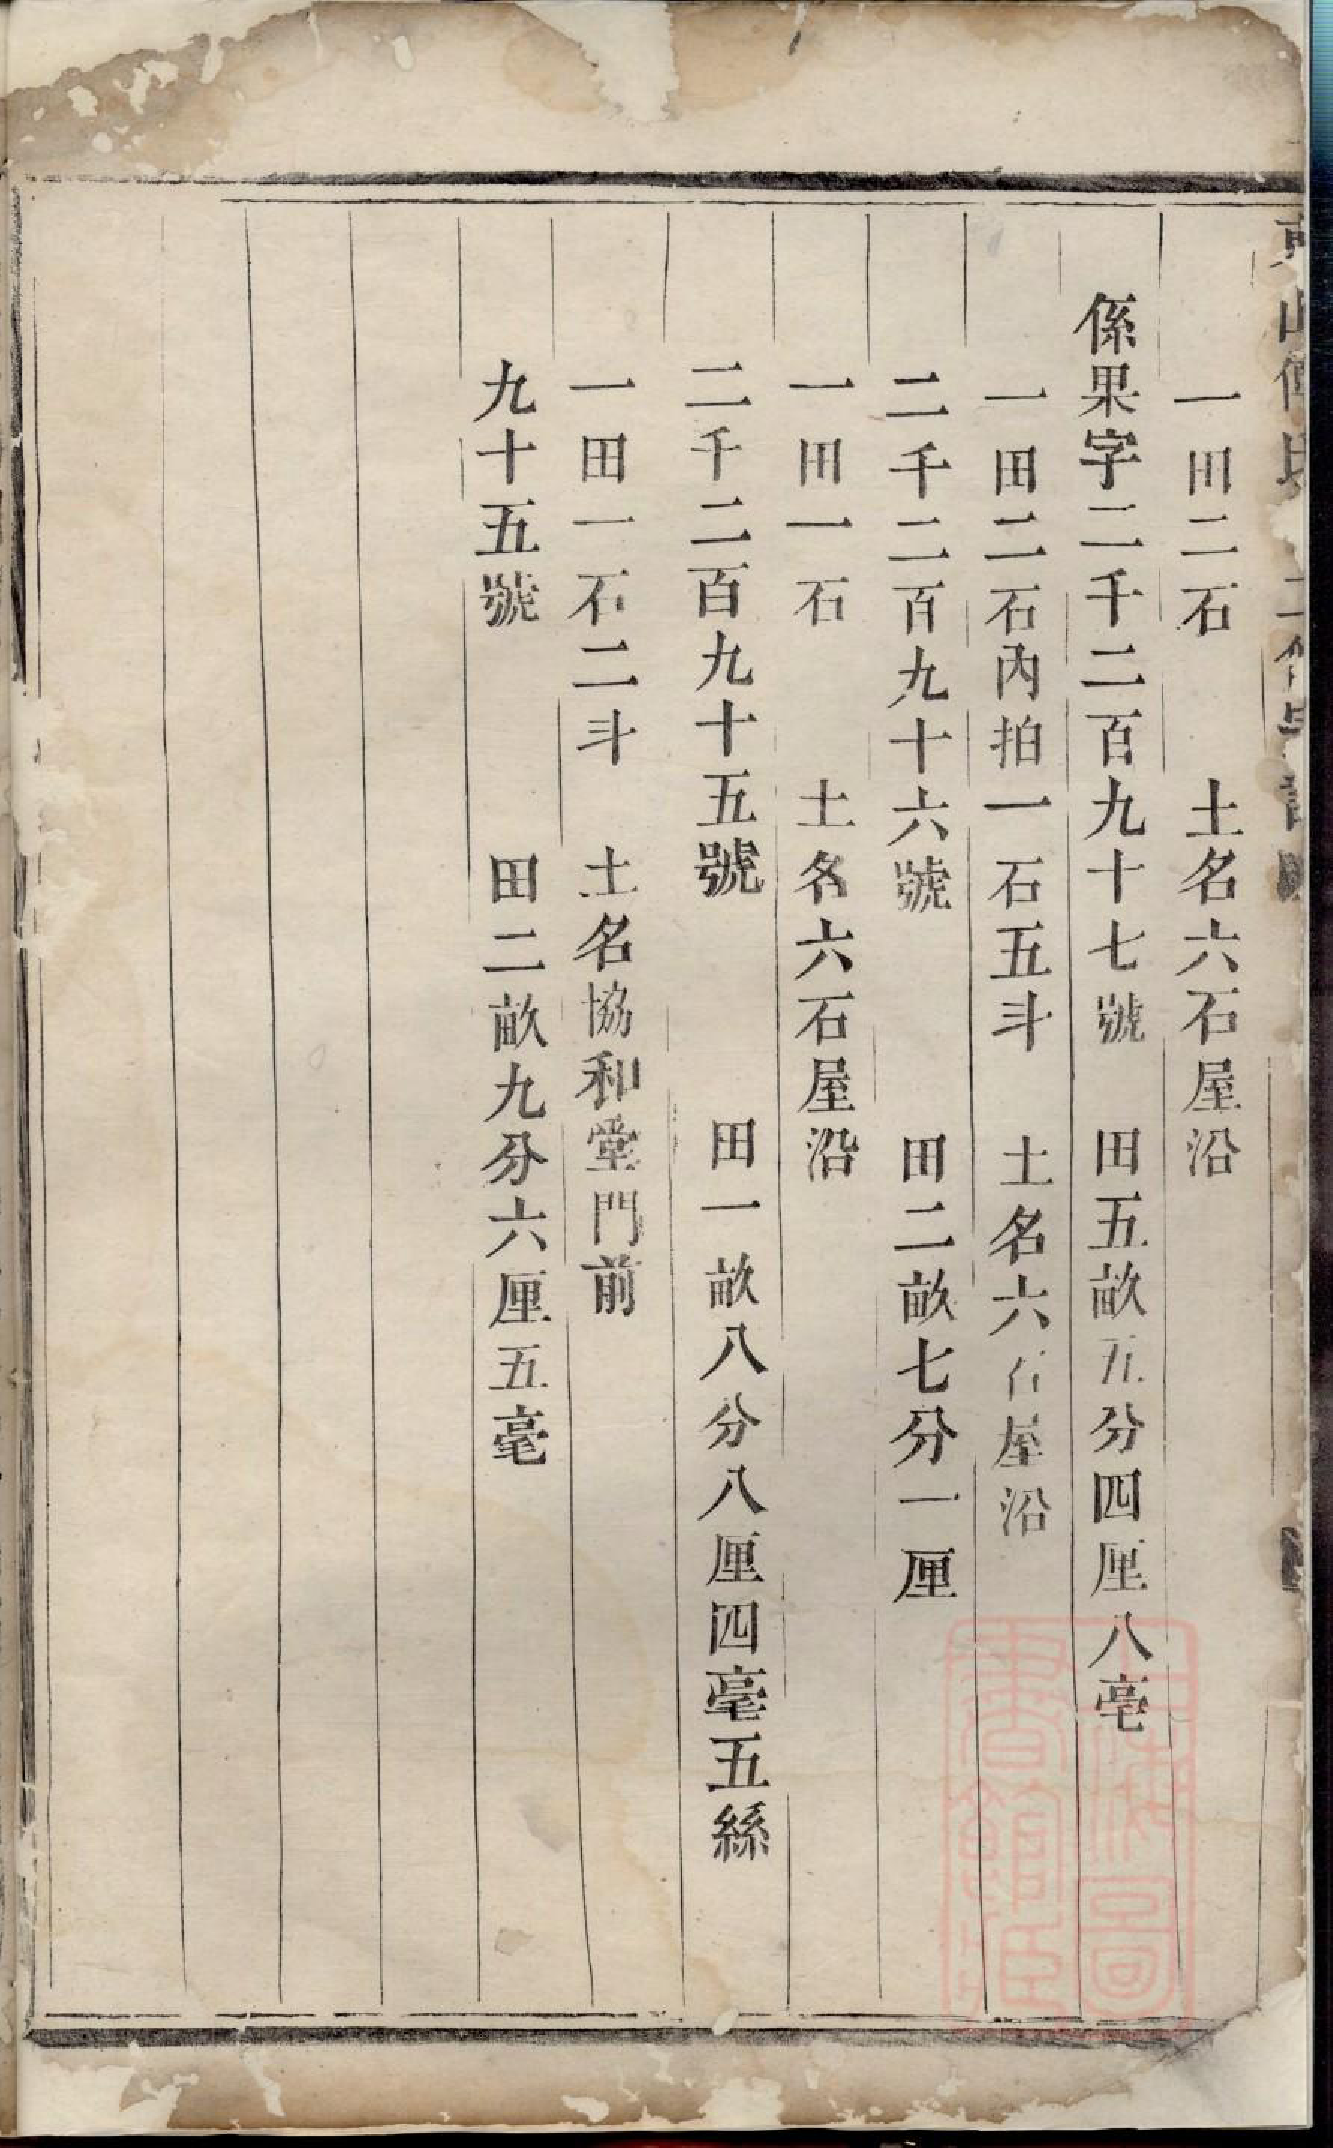 一田二石　土名六石屋沿
係果字二千二百九十七號　田五畝五分四厘八毫
一田二石內拍一石五斗　土名六石屋沿
二千二百九十六號　田二畝七分一厘
一田一石　土名六石屋沿
二千二百九十五號　田一畝八分八厘四毫五絲
一田一石二斗　土名協和堂門前
九十五號　田二畝九分六厘五毫
上海圖書館藏